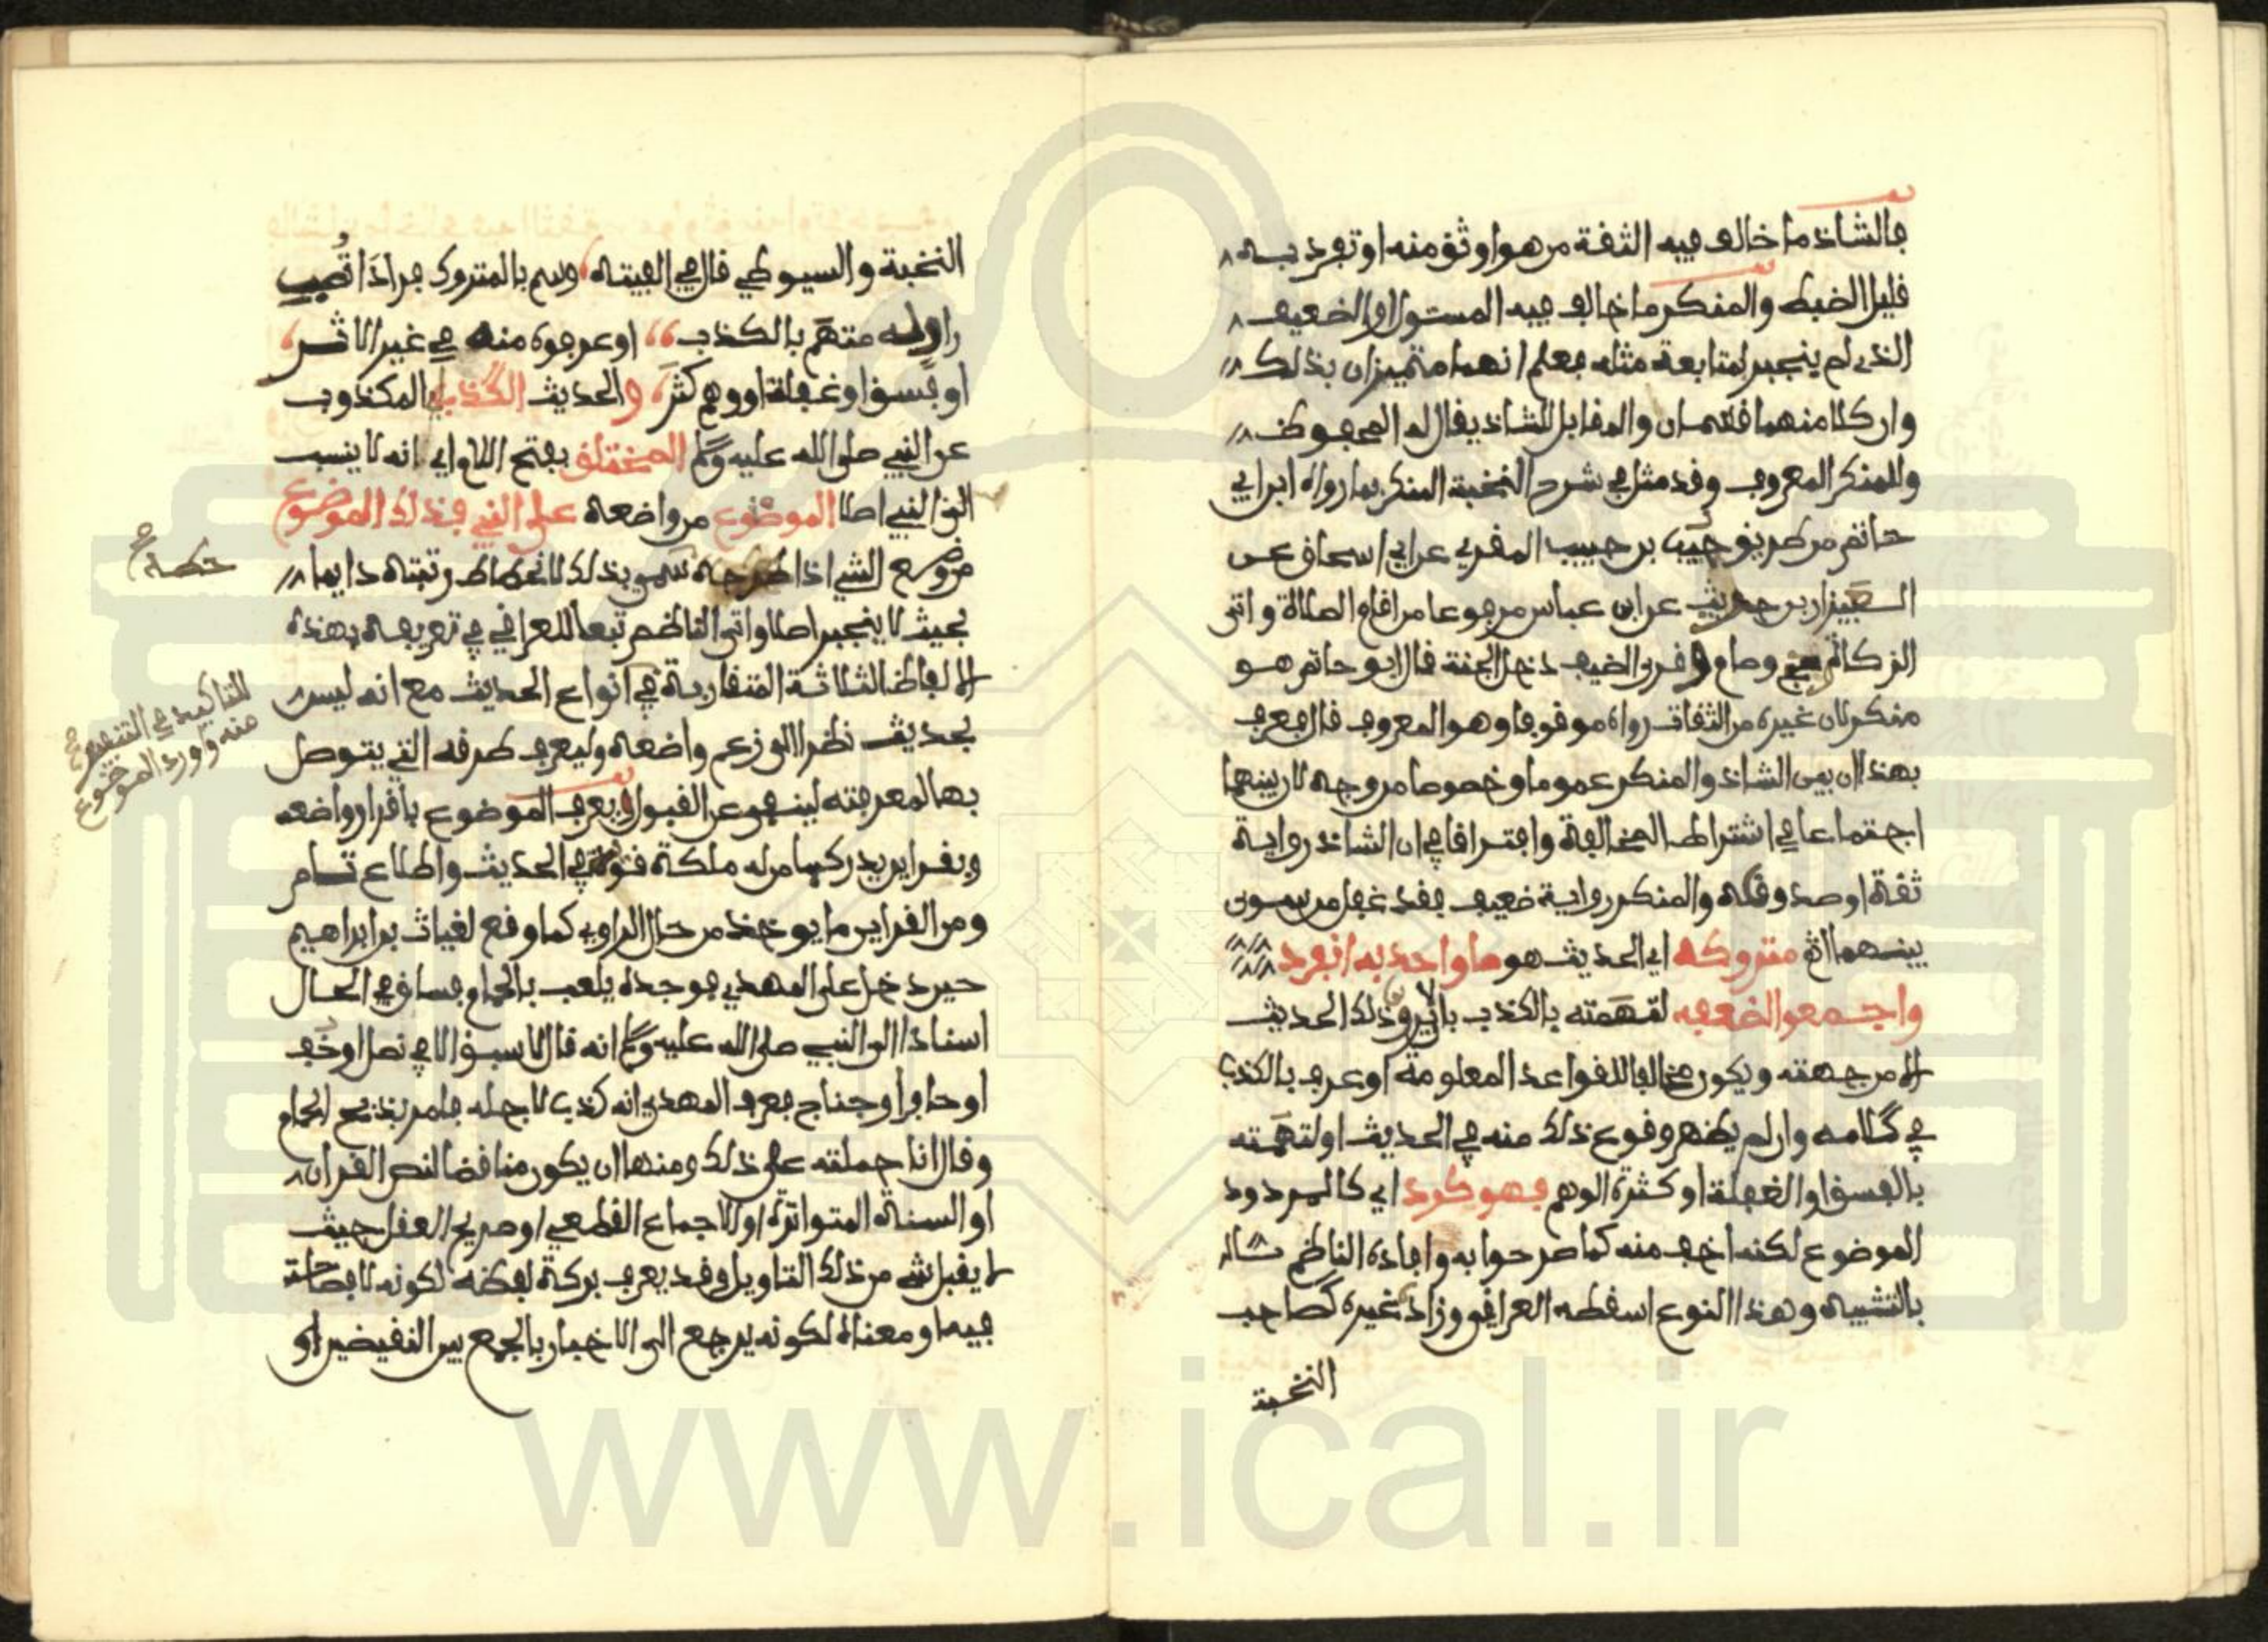 فالشاذ ما خالف فيه الثقة من هو اوثق منه او تفرد به
قليل الضبط والمنكر ما خالف فيه المستور او الضعيف
الذي لم ينجبر لمتابعة مثله فعلم انهما متميزان بذلك
وان كلا منهما قسمان والمقابل للشاذ يقال له المحفوظ
وللمنكر المعروف وقد مثل في شرح النخبة المنكر بما رواه ابن ابي
حاتم من طريق حبيب بن حبيب المقري عن ابي اسحاق عن
العيزار بن حريث عن ابن عباس مرفوعا من اقام الصلاة واتى
الزكاة وحج وصام وقرى الضيف دخل الجنة قال ابو حاتم هو
منكر لان غيره من الثقات رواه موقوفا وهو المعروف قال فعرف
بهذا ان بين الشاذ والمنكر عموما وخصوصا من وجه لان بينهما
اجتماعا في اشتراط المخالفة وافتراقا في ان الشاذ رواية
ثقة او صدوق والمنكر رواية ضعيف فقد غفل من سوى
بينهما متروكه اي الحديث هو ما واحد به انفرد
واجمعوا لضعفه لتهمته بالكذب بان لا يروى ذلك الحديث
الا من جهته ويكون مخالفا للقواعد المعلومة او عرف بالكذب
في كلامه وان لم يظهر وقوع ذلك منه في الحديث او لتهمته
بالفسق او الغفلة او كثرة الوهم فهو كرد اي كالمردود
الموضوع لكنه اخف منه كما صرحوا به وافاده الناظم
بالتشبيه وهذا النوع اسقطه العراقي وزاد غيره كصاحب
النخبة
النخبة والسيوطي قال في الفيته وسم بالمتروك فردا تصب
راو له متهم بالكذب او عرفوه منه في غير الاثر
او فسق او غفلة او وهم كثر والحديث الكذب المكذوب
عن النبي صلى الله عليه وسلم المختلق بفتح اللام اي انه لا ينسب
الى النبي اصلا الموضوع من واضعه على النبي فذلك الموضوع
من وضع الشي اذا حطه سمي بذلك لانحطاط رتبته دايما
بحيث لا ينجبر اصلا واتى الناظم تبعا للعراقي في تعريفه بهذه
الالفاظ الثلاثة المتقاربة في انواع الحديث مع انه ليس
بحديث نظرا الى زعم واضعه وليعرف طرقه التي يتوصل
بها لمعرفته لينفى عن القبول ويعرف الموضوع باقرار واضعه
وبقراين يدركها من له ملكة قوية في الحديث واطلاع تام
ومن القراين ما يوخذ من حال الراوي كما وقع لغياث بن ابراهيم
حين دخل على المهدي فوجده يلعب بالحمام فساق في الحال
اسنادا الى النبي صلى الله عليه وسلم انه قال لا سبق الا في نصل او خف
او حافر او جناح فعرف المهدي انه كذب لاجله فامر بذبح الحمام
وقال انا حملته على ذلك ومنها ان يكون مناقضا لنص القران
او السنة المتواترة او الاجماع القطعي او صريح العقل حيث
لا يقبل شي من ذلك التاويل وقد يعرف بركة لفظه لكونه لا فصاحة
فيه او معناه لكونه يرجع الى الاخبار بالجمع بين النقيضين او
حطه صح
للتاكيد في التنفير
منه واورد الموضوع
www.ical.ir